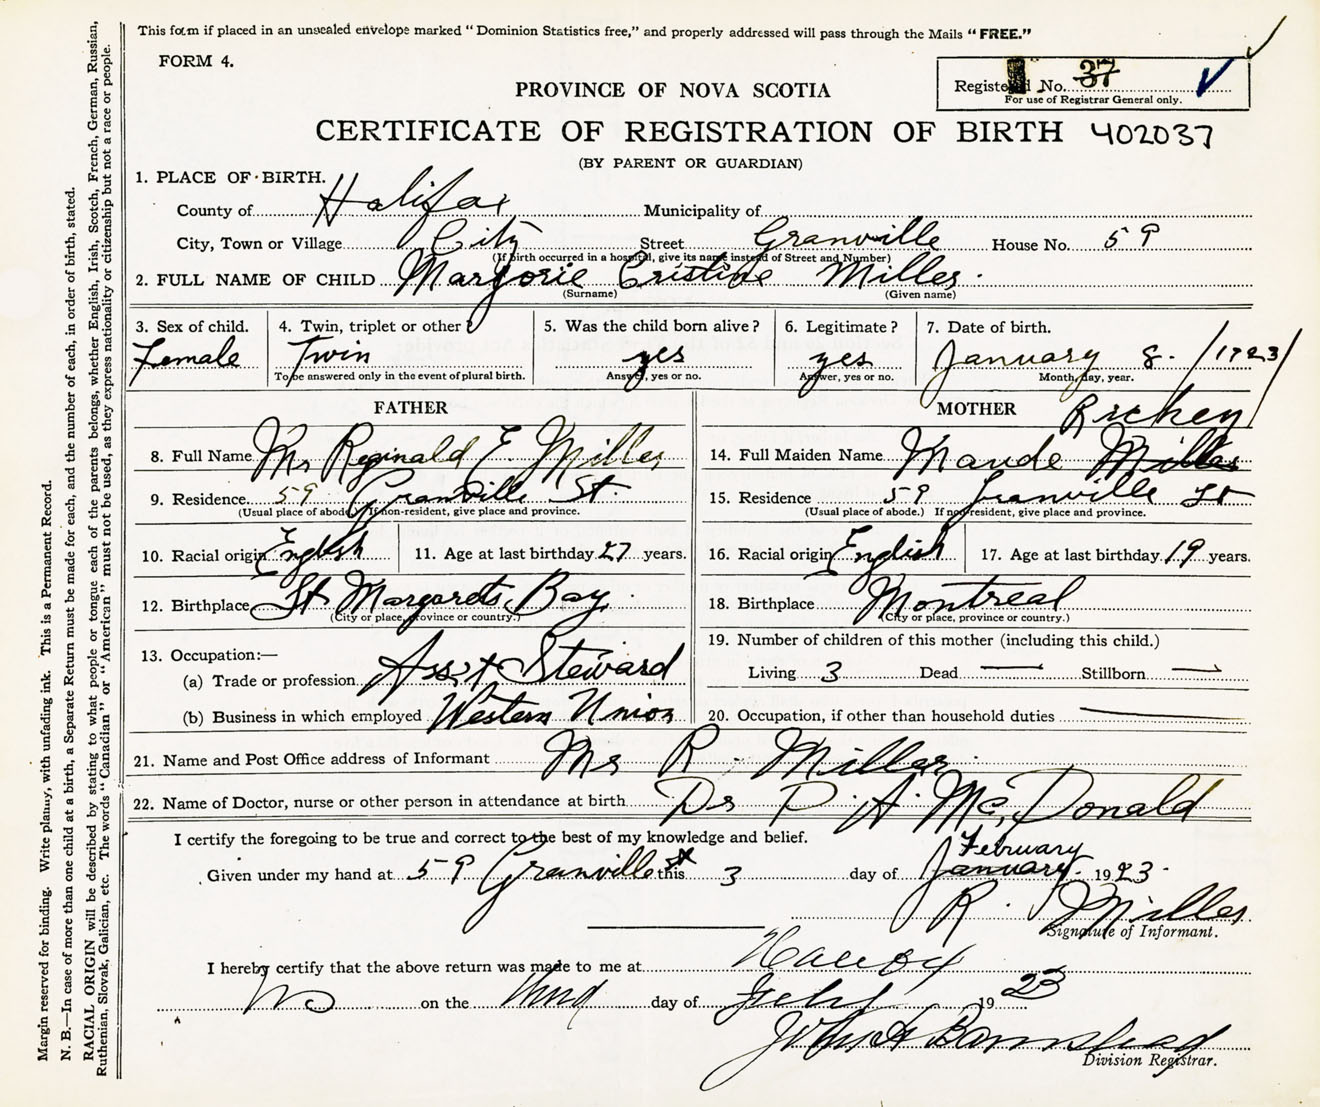 This form if placed in an unsealed envelope marked "Dominion Statistics free," and properly addressed will pass through the Mails "FREE."
FORM 4.
Registered No. 37
For use of Registrar General only.
PROVINCE OF NOVA SCOTIA
CERTIFICATE OF REGISTRATION OF BIRTH 402037
(BY PARENT OR GUARDIAN)
1. PLACE OF BIRTH.
County of Halifax Municipality of
City, Town or Village City Street Granville House No. 59
(If birth occurred in a hospital, give its name instead of Street and Number)
2. FULL NAME OF CHILD Marjorie Cristine Miller
(Surname) (Given name)
3. Sex of child. 4. Twin, triplet or other? 5. Was the child born alive? 6. Legitimate? 7. Date of birth.
Female Twin yes yes January 8. /1923/
To be answered only in the event of plural birth. Answer, yes or no. Answer, yes or no. Month, day, year.
FATHER
8. Full Name Mr Reginald E. Miller
9. Residence 59 Granville St.
(Usual place of abode.) If non-resident, give place and province.
10. Racial origin English 11. Age at last birthday 27 years.
12. Birthplace St Margarets Bay
(City or place, province or country.)
13. Occupation:—
(a) Trade or profession Asst Steward
(b) Business in which employed Western Union
MOTHER
Richey
14. Full Maiden Name Maude Miller
15. Residence 59 Granville St
(Usual place of abode.) If non-resident, give place and province.
16. Racial origin English 17. Age at last birthday 19 years.
18. Birthplace Montreal
(City or place, province or country.)
19. Number of children of this mother (including this child.)
Living 3 Dead — Stillborn —
20. Occupation, if other than household duties —
21. Name and Post Office address of Informant Mr R. Miller
22. Name of Doctor, nurse or other person in attendance at birth Dr P. A. McDonald
I certify the foregoing to be true and correct to the best of my knowledge and belief.
February
Given under my hand at 59 Granville St this 3 day of January 1923.
R. Miller
Signature of Informant.
I hereby certify that the above return was made to me at
on the third day of Feby 1923
Division Registrar.
Margin reserved for binding. Write plainly, with unfading ink. This is a Permanent Record.
N. B.—In case of more than one child at a birth, a Separate Return must be made for each, and the number of each, in order of birth, stated.
RACIAL ORIGIN will be described by stating to what people or tongue each of the parents belongs, whether English, Irish, Scotch, French, German, Russian,
Ruthenian, Slovak, Galician, etc. The words "Canadian" or "American" must not be used, as they express nationality or citizenship but not a race or people.